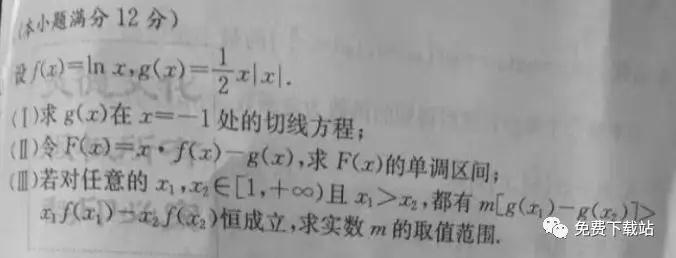 (本小题满分 12 分)
设 f(x)=ln x,g(x)=\frac{1}{2}x|x|.
(Ⅰ)求 g(x)在 x=-1 处的切线方程;
(Ⅱ)令 F(x)=x·f(x)-g(x),求 F(x)的单调区间;
(Ⅲ)若对任意的 x₁,x₂∈[1,+∞)且 x₁>x₂,都有 m[g(x₁)-g(x₂)]>
x₁f(x₁)-x₂f(x₂)恒成立,求实数 m 的取值范围.
免费下载站